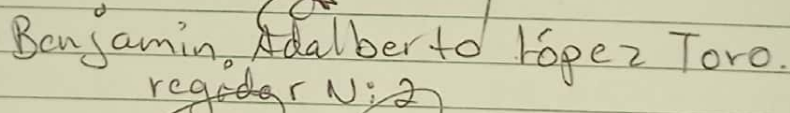 Benjamin Adalberto López Toro.
regidor N: 2